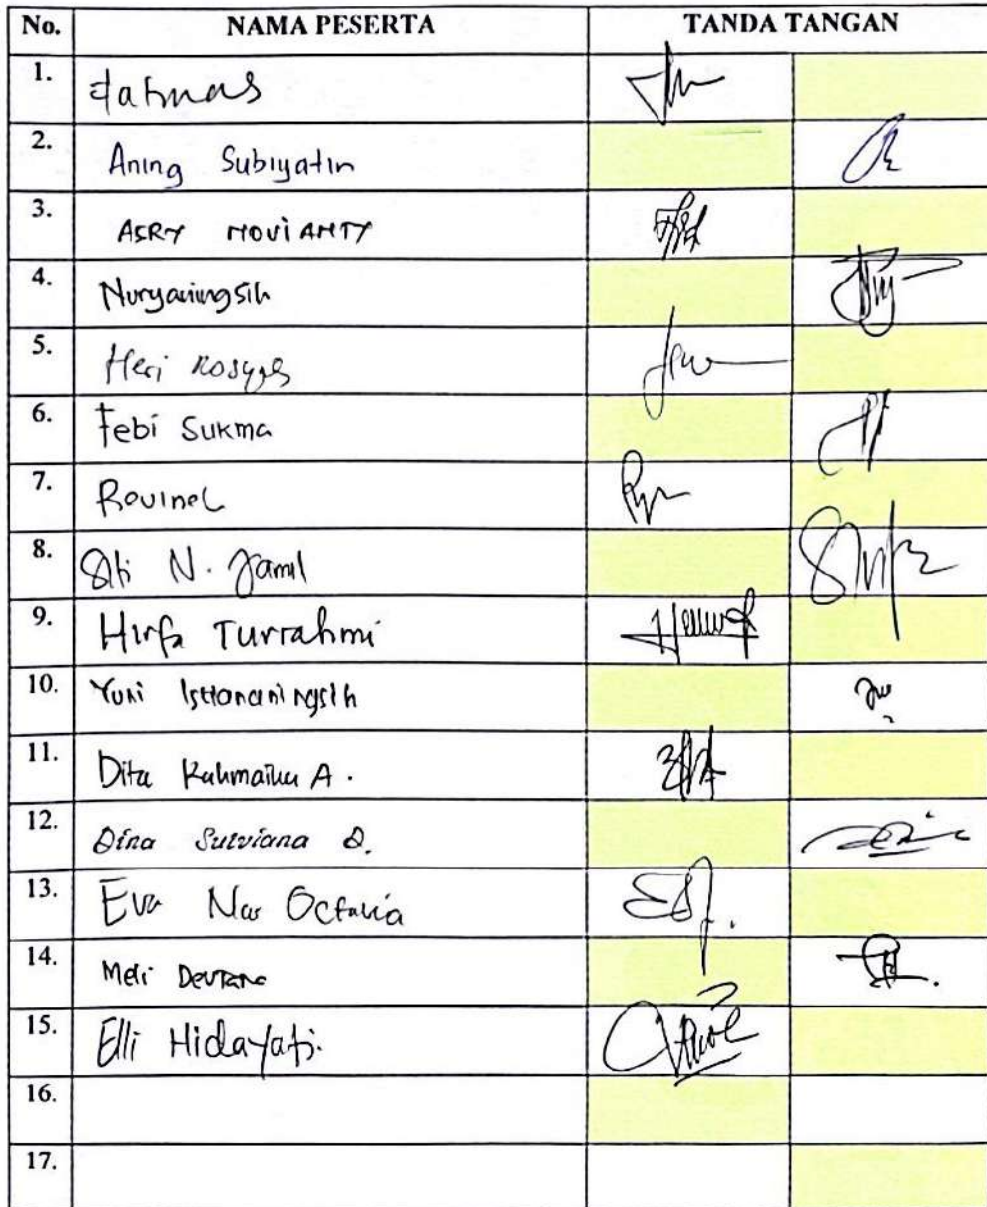 No. NAMA PESERTA TANDA TANGAN
1. Fatmas
2. Aning Subiyatin
3. ASRY NOVIANTY
4. Nuryaningsih
5. Heri
6. Febi Sukma
7. Rovinel
8. Siti N. Jamil
9. Hirfa Turrahmi
10. Yuni Istiananingsih
11. Dita A.
12. Dina D.
13. Eva Nur Octavia
14. Meli Deviana
15. Elli Hidayati.
16.
17.